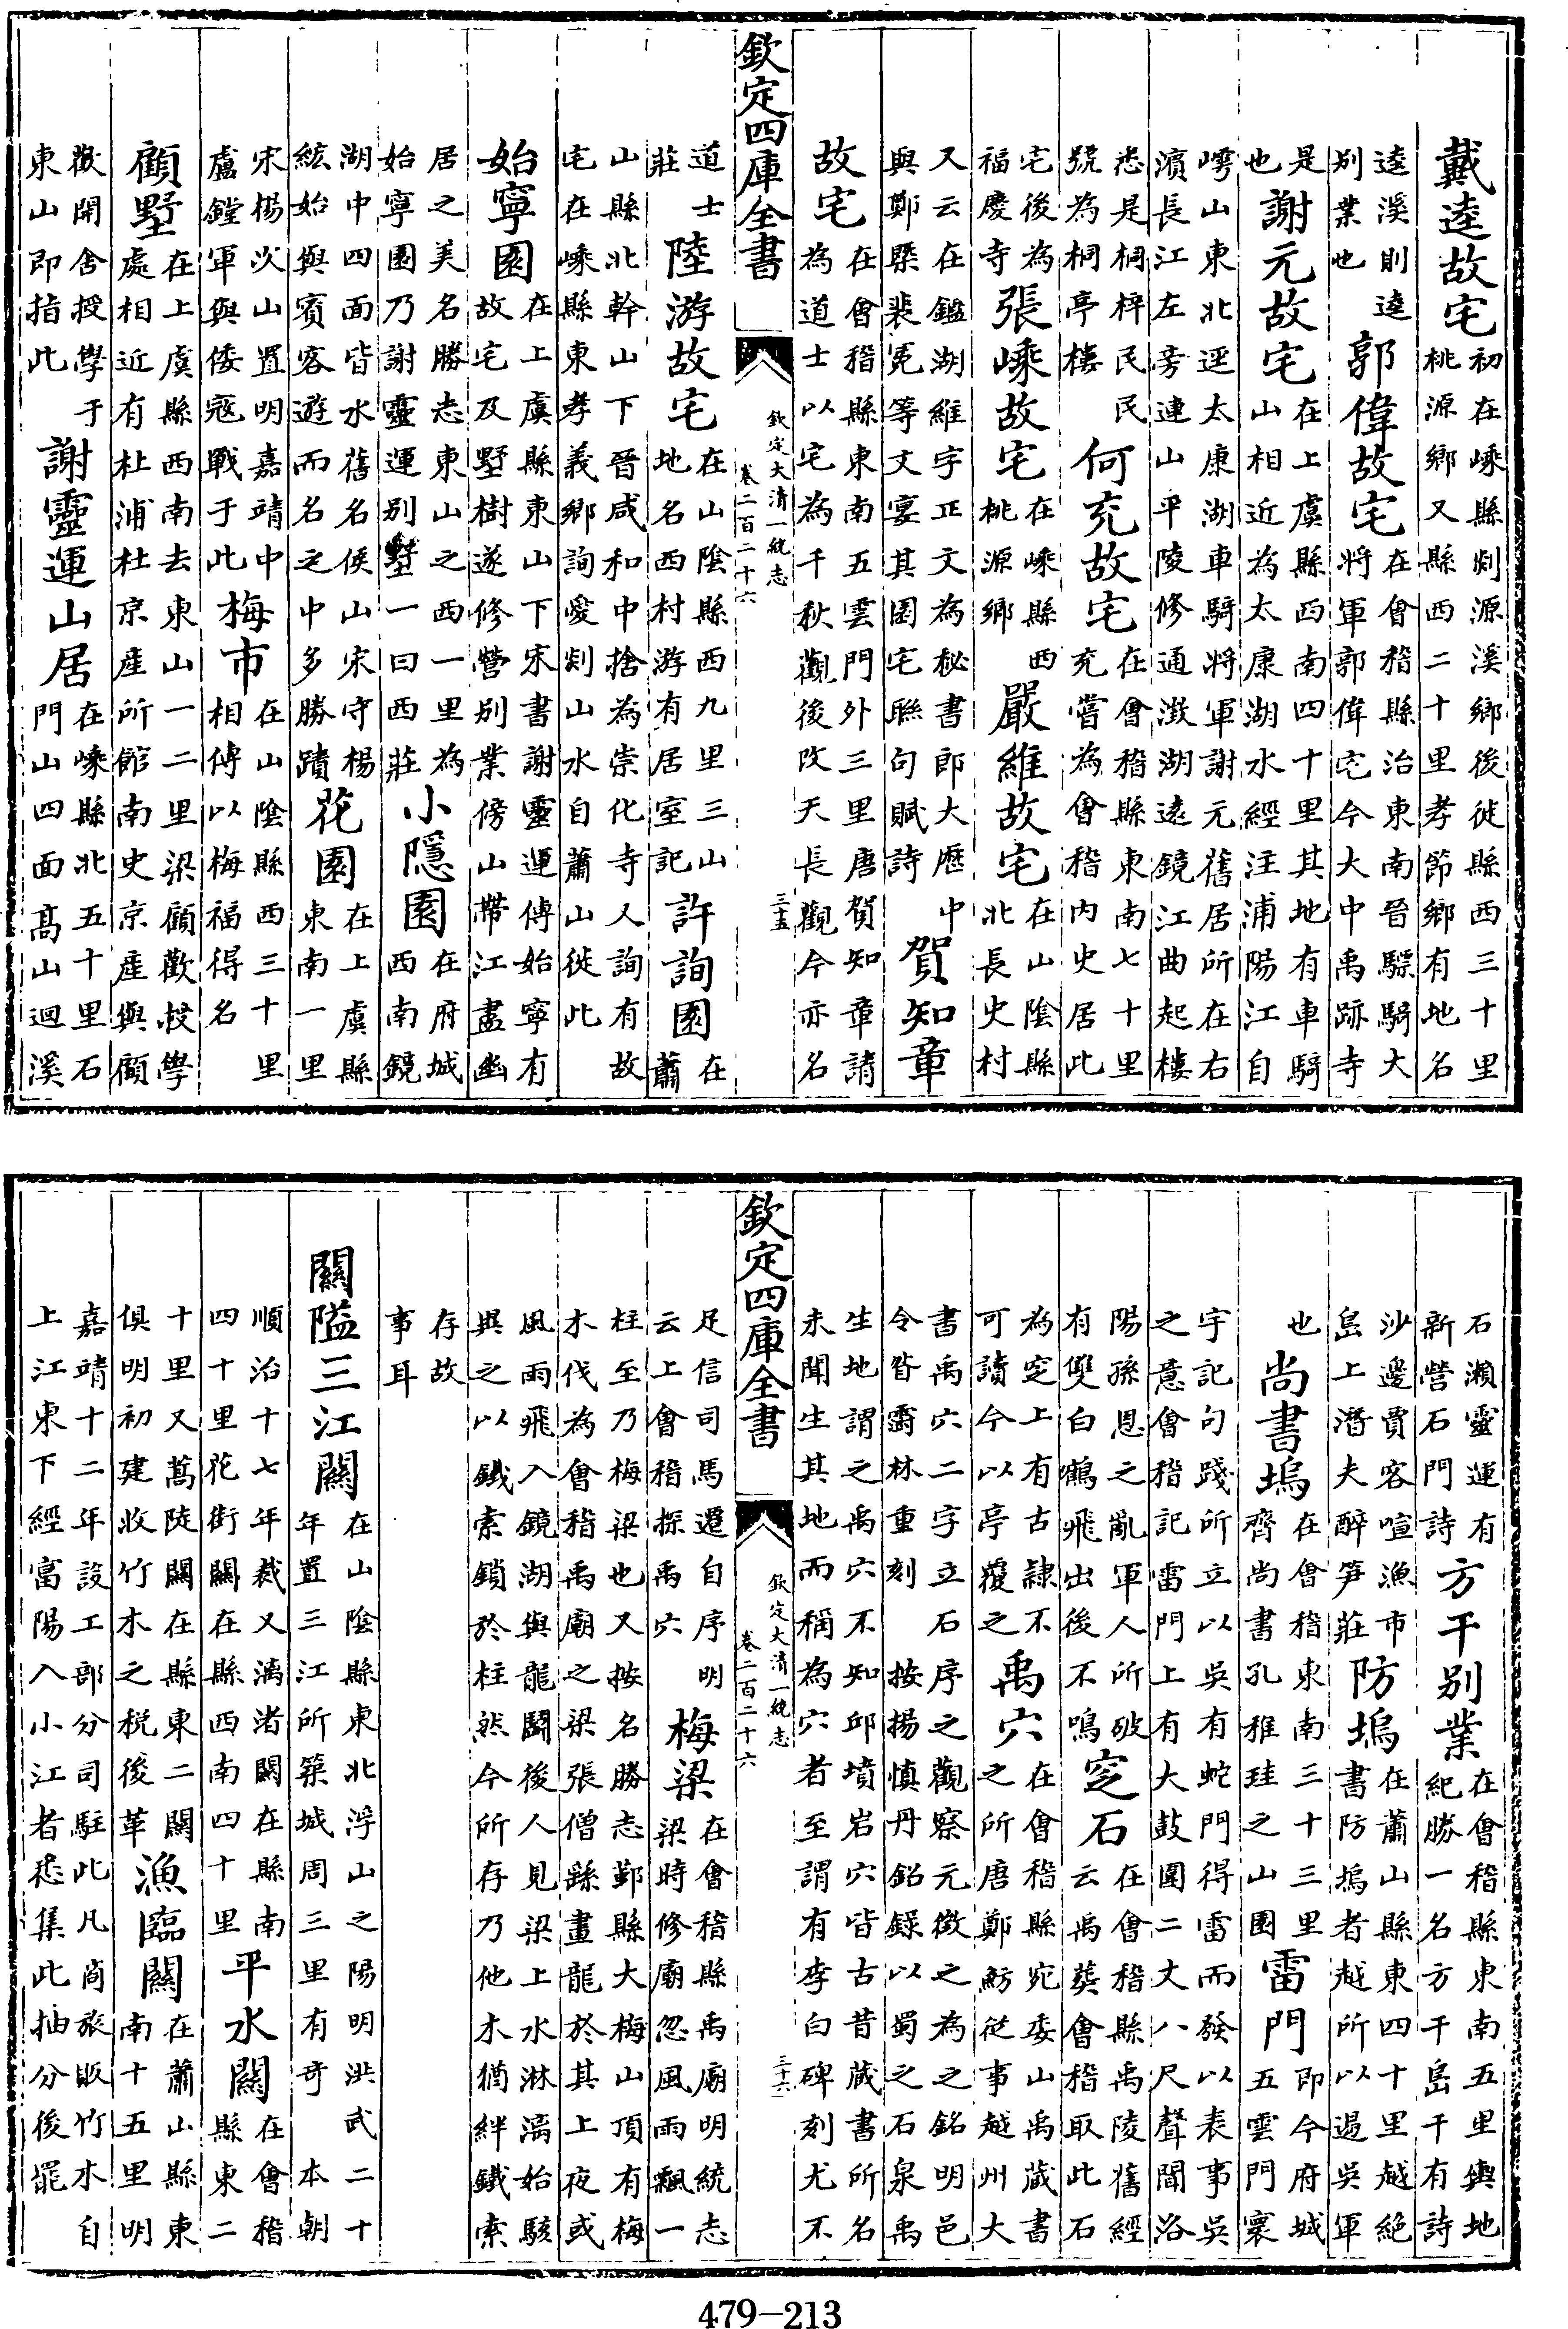 戴逵故宅初在嵊縣剡源溪鄉後徙縣西三十里桃源鄉又縣西二十里孝節鄉有地名
逵溪則逵别業也郭偉故宅在會稽縣治東南晉驃騎大將軍郭偉宅今大中禹跡寺
是也謝元故宅在上虞縣西南四十里其地有車騎山相近為太康湖水經注浦陽江自
嶀山東北逕太康湖車騎將軍謝元舊居所在右濱長江左旁連山平陵修通澂湖遠鏡江曲起樓
悉是桐梓民民號為桐亭樓何充故宅在會稽縣東南七十里充嘗為會稽内史居此
宅後為福慶寺張嵊故宅在嵊縣西桃源鄉嚴維故宅在山陰縣北長史村
又云在鑑湖維字正文為秘書郎大歴中與鄭槩裴冕等文宴其園宅聯句賦詩賀知章
故宅在會稽縣東南五雲門外三里唐賀知章請為道士以宅為千秋觀後改天長觀今亦名
欽定四庫全書 欽定大清一統志 卷二百二十六 三十五
道士莊陸游故宅在山陰縣西九里三山地名西村游有居室記許詢園在蕭
山縣北幹山下晉咸和中捨為崇化寺又詢有故宅在嵊縣東孝義鄉詢愛剡山水自蕭山徙此
始寧園在上虞縣東山下宋書謝靈運傳始寧有故宅及墅樹遂修營别業傍山帶江盡幽
居之美名勝志東山之西一里為始寧園乃謝靈運别墅一曰西莊小隱園在府城西南鏡
湖中四面皆水舊名侯山宋守楊紘始與賓客遊而名之中多勝蹟花園在上虞縣東南一里
宋楊次山置明嘉靖中盧鏜軍與倭寇戰于此梅市在山陰縣西三十里相傳以梅福得名
顧墅在上虞縣西南去東山一二里梁顧歡校學處相近有杜浦杜京産所館南史京産與顧
歡開舍授學于東山即指此謝靈運山居在嵊縣北五十里石門山四面髙山迴溪
石瀨靈運有新營石門詩方干别業在會稽縣東南五里輿地紀勝一名方干島干有詩
沙邊賈客喧漁市島上潛夫醉笋莊防塢在蕭山縣東四十里越絶書防塢者越所以遏吳軍
也尚書塢在會稽東南三十三里齊尚書孔稚珪之山園雷門即今府城五雲門寰
宇記句踐所立以吳有蛇門得雷而發以表事吳之意會稽記雷門上有大鼓圍二丈八尺聲聞洛
陽孫恩之亂軍人所破有雙白鶴飛出後不鳴窆石在會稽縣禹陵舊經云禹葬會稽取此石
為窆上有古隸不可讀今以亭覆之禹穴在會稽縣宛委山禹藏書之所唐鄭魴從事越州大
書禹穴二字立石序之觀察元微之為之銘明邑令昝霨林重刻按揚慎丹鉛録以蜀之石泉禹
生地謂之禹穴不知邱墳岩穴皆古昔藏書所名未聞生其地而稱為穴者至謂有李白碑刻尤不
欽定四庫全書 欽定大清一統志 卷二百二十六 三十六
足信司馬遷自序明云上會稽探禹穴梅梁在會稽縣禹廟明統志梁時修廟忽風雨飄一
柱至乃梅梁也又按名勝志鄞縣大梅山頂有梅木伐為會稽禹廟之梁張僧繇畫龍於其上夜或
風雨飛入鏡湖與龍鬬後人見梁上水淋漓始駭與之以鐵索鎖於柱然今所存乃他木猶絆鐵索
存故事耳
關隘三江關在山陰縣東北浮山之陽明洪武二十年置三江所築城周三里有奇本朝
順治十七年裁又漓渚關在縣南四十里花街關在縣西南四十里平水關在會稽縣東二
十里又蒿陡關在縣東二關俱明初建收竹木之税後革漁臨關在蕭山縣東南十五里明
嘉靖十二年設工部分司駐此凡商旅販竹木自上江東下經富陽入小江者悉集此抽分後罷
479-213